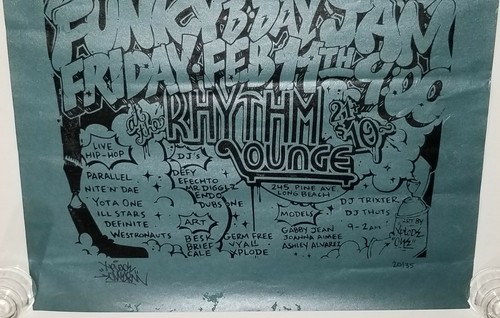 FUNKY B-DAY JAM
FRIDAY FEB 11TH 9:00
at the RHYTHM 21 to
LOUNGE
245 PINE AVE
LONG BEACH
LIVE
HIP-HOP
PARALLEL
NITE 'N' DAE
YOTA ONE
ILL STARS
DEFINITE
WESTRONAUTS
DJ'S
DEFY
EFECHTO
MR DIGGLZ
ENDO
DUBS ONE
ART
BESK
BRIEF
CALE
GERM FREE
VYALL
XPLODE
MODELS
GABBY JEAN
JOANNA AIMEE
ASHLEY ALVAREZ
DJ TRIXTER
DJ THUTS
9-2AM
ART BY
XPLODE
20/35